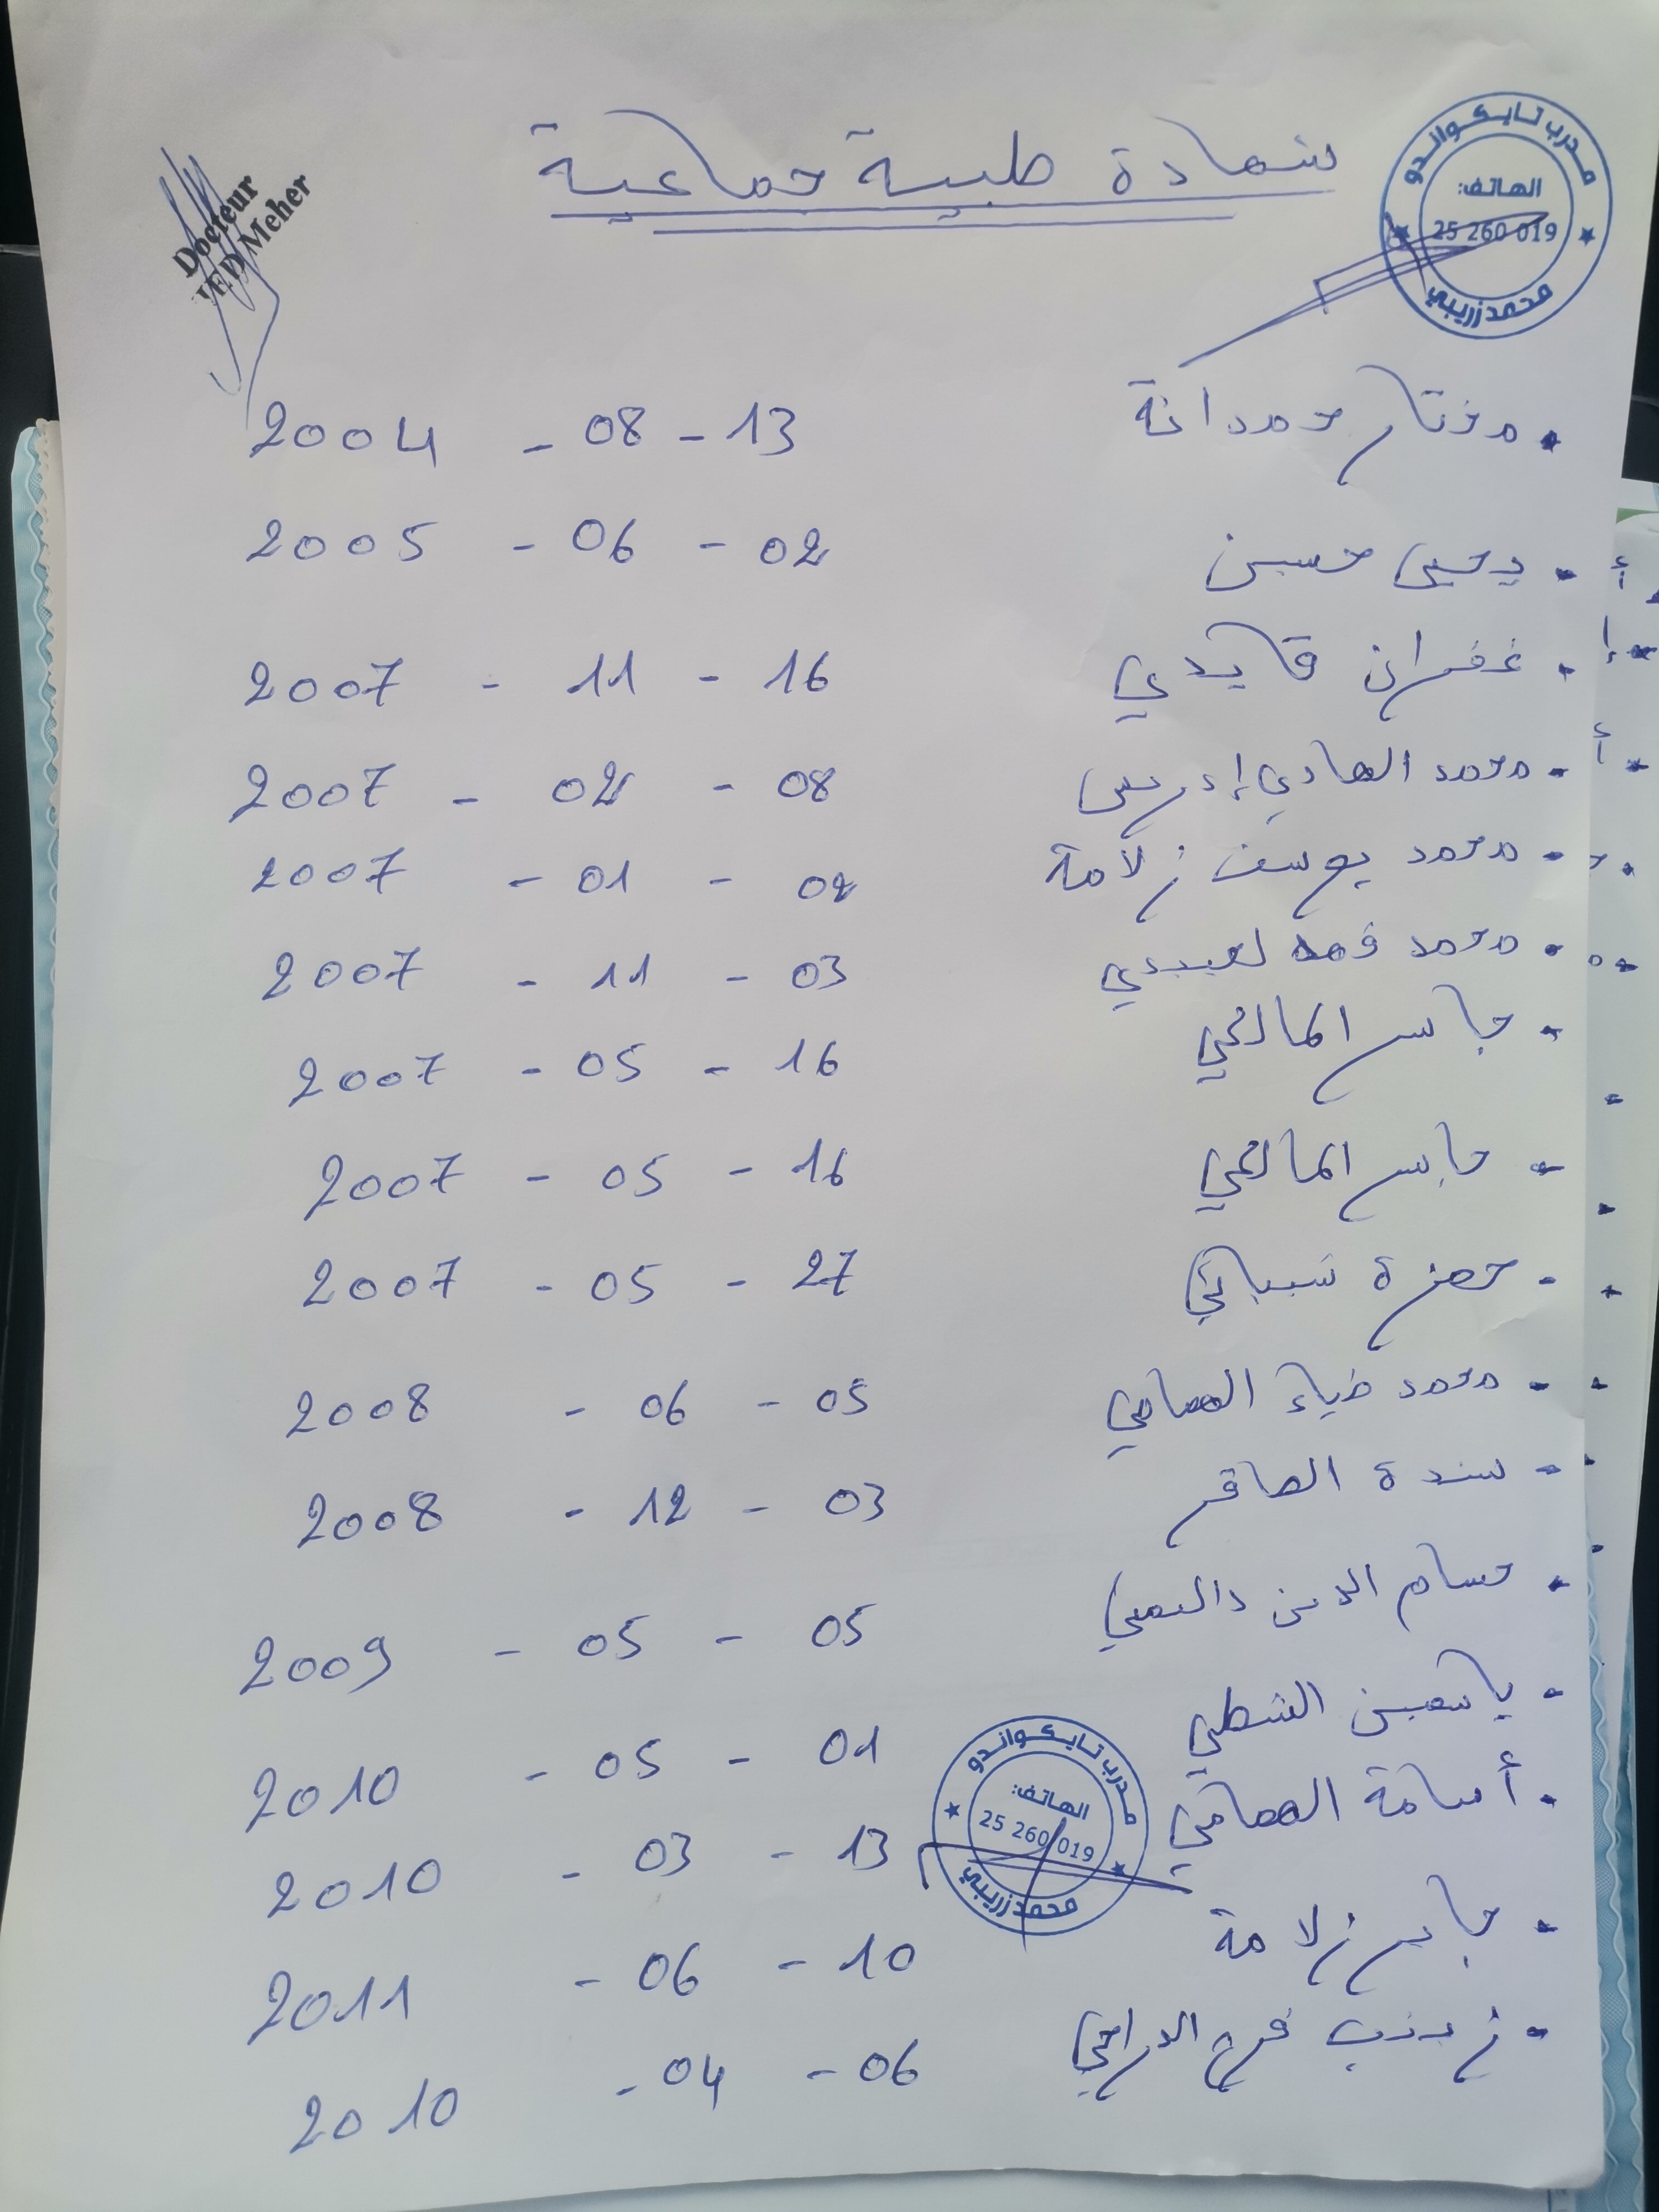 شهادة طبية جماعية
مدرب تايكواندو
الهاتف:
25 260 019
محمد زريبي
Docteur
Meher
مختار حمدانة 13 - 08 - 2004
يحيى حسين 02 - 06 - 2005
غفران قايدي 16 - 11 - 2007
محمد الهادي إدريس 08 - 02 - 2007
محمد يوسف زلامة 02 - 01 - 2007
محمد فهد لعبيدي 03 - 11 - 2007
جاسر المالكي 16 - 05 - 2007
جابر المالكي 16 - 05 - 2007
حمزة شيباني 27 - 05 - 2007
محمد ضياء العصامي 05 - 06 - 2008
سندة الصاقر 03 - 12 - 2008
حسام الدين 05 - 05 - 2009
ياسمين الشطي 01 - 05 - 2010
أسامة العصامي 13 - 03 - 2010
مدرب تايكواندو
الهاتف:
25 260 019
محمد زريبي
جابر زلامة 10 - 06 - 2011
زينب فرج 06 - 04 - 2010